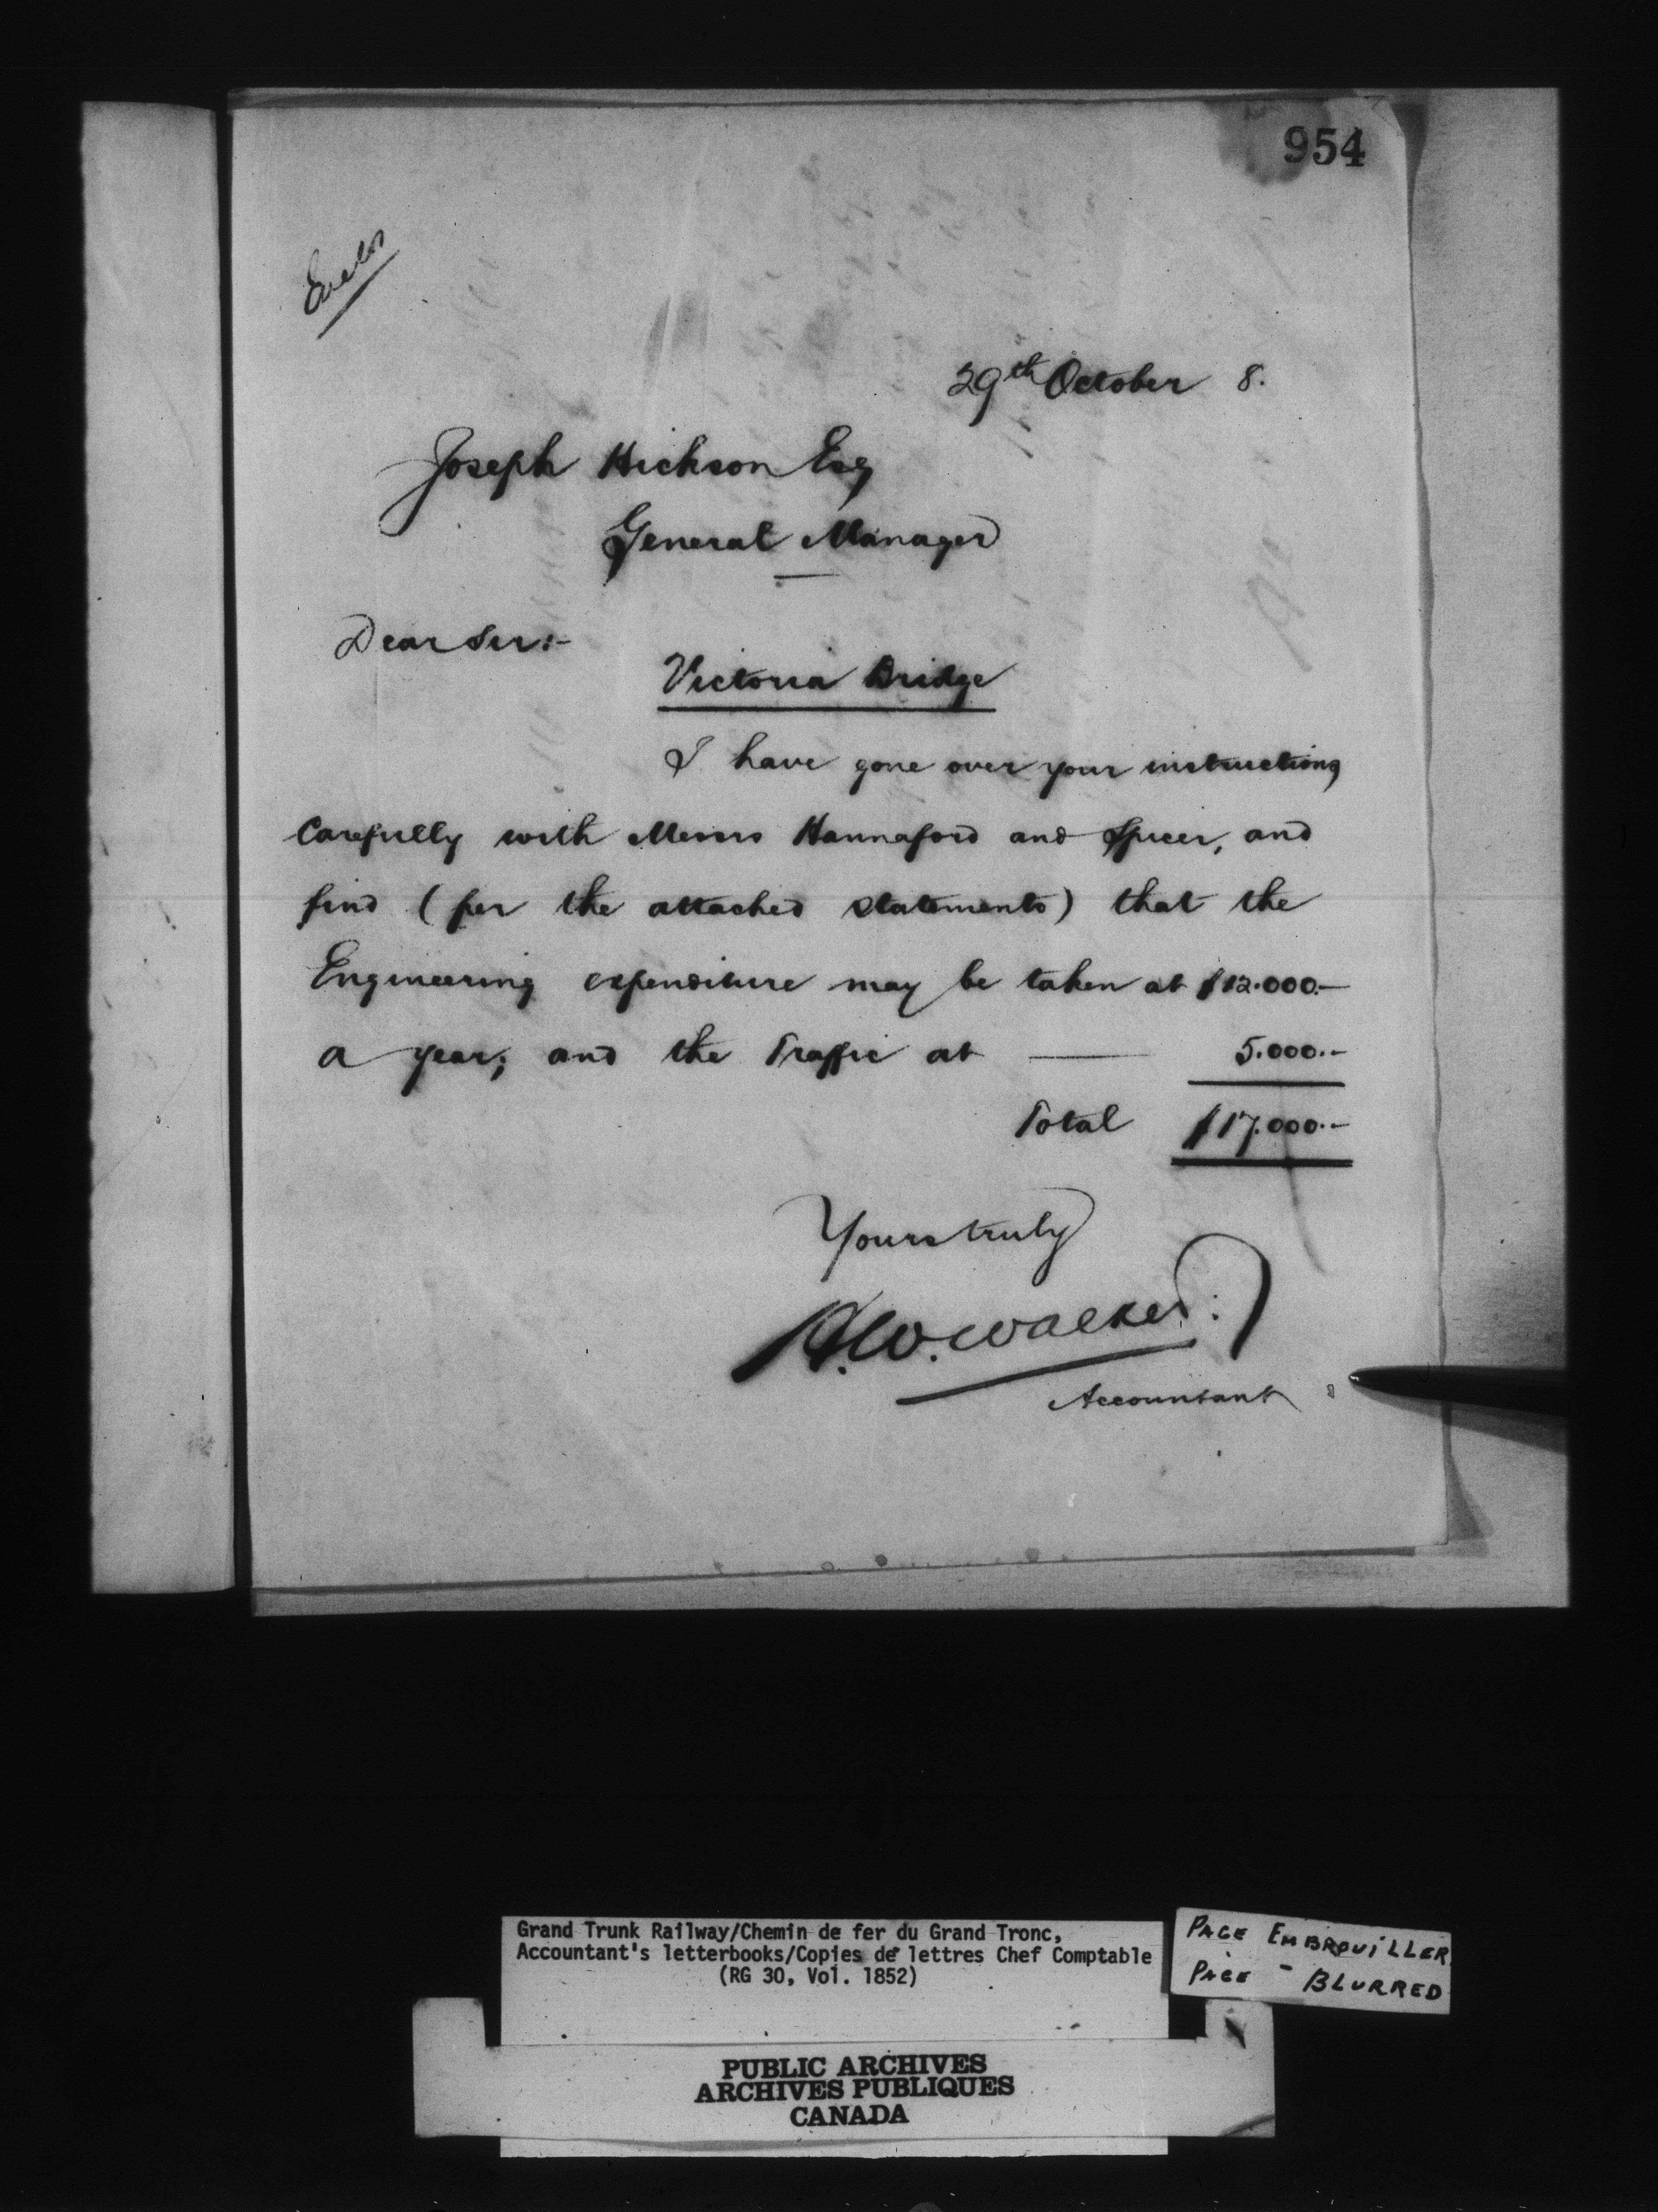 954
Enclos
29th October 8.
Joseph Hickson Esq
General Manager
Dear Sir:-
Victoria Bridge
I have gone over your instructions
carefully with Messrs Hannaford and Spicer, and
find (per the attached statements) that the
Engineering expenditure may be taken at $12.000.-
a year; and the Traffic at — 5.000.-
Total $17.000.-
Yours truly
H.W. Walker
Accountant
Grand Trunk Railway/Chemin de fer du Grand Tronc,
Accountant's letterbooks/Copies de lettres Chef Comptable
(RG 30, Vol. 1852)
PAGE EMBROUILLER
PAGE - BLURRED
PUBLIC ARCHIVES
ARCHIVES PUBLIQUES
CANADA